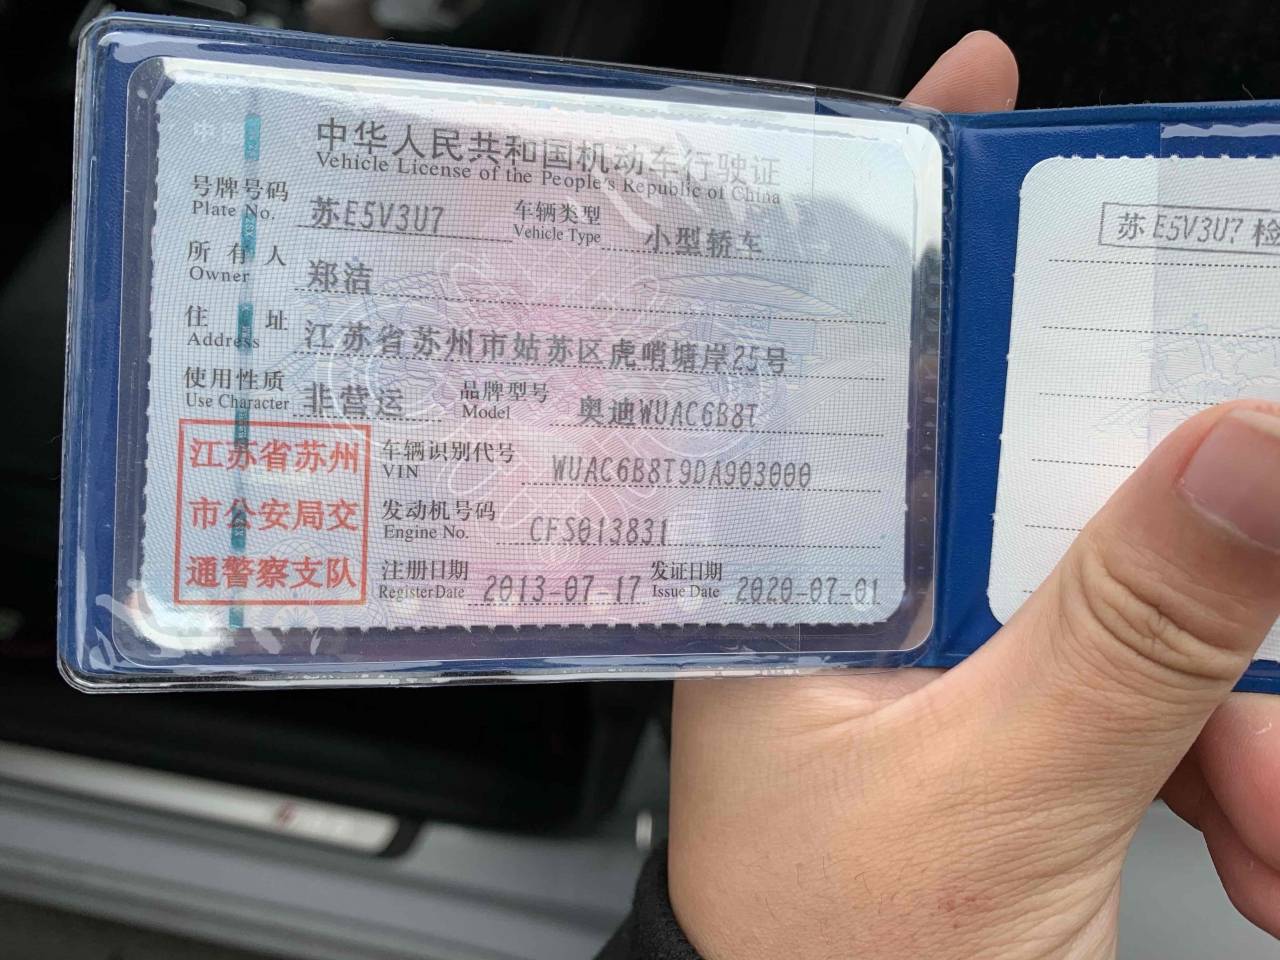 中华人民共和国机动车行驶证
Vehicle License of the People's Republic of China
号牌号码 苏E5V3U7 车辆类型 小型轿车
Plate No. Vehicle Type
所有人 郑洁
Owner
住址 江苏省苏州市姑苏区虎哨塘岸25号
Address
使用性质 非营运 品牌型号 奥迪WUAC6B8T
Use Character Model
江苏省苏州
市公安局交
通警察支队
车辆识别代号 WUAC6B8T9DA903000
VIN
发动机号码 CFS013831
Engine No.
注册日期 2013-07-17 发证日期 2020-07-01
Register Date Issue Date
苏E5V3U7 检